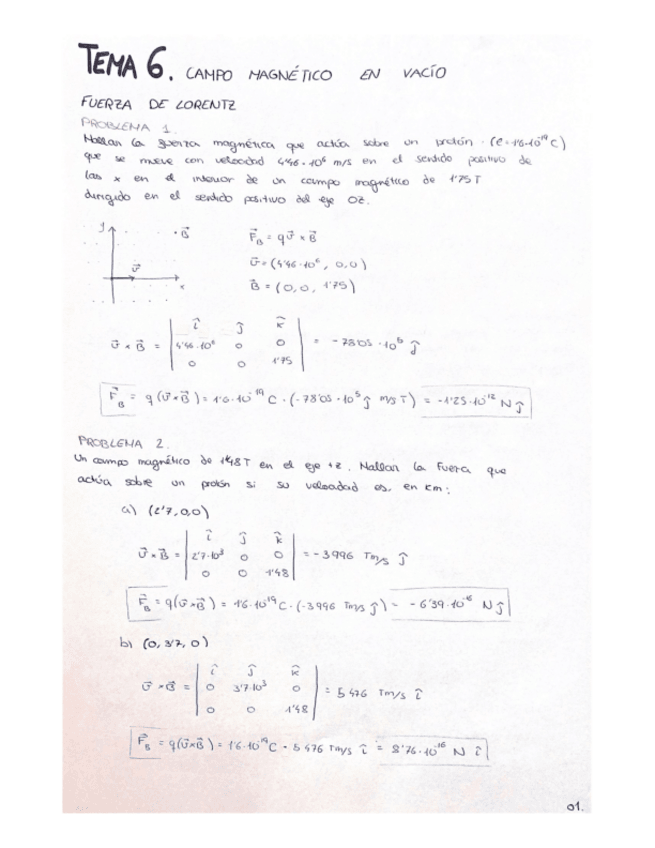 TEMA 6. CAMPO MAGNÉTICO EN VACÍO
FUERZA DE LORENTZ
PROBLEMA 1.
Hallar la fuerza magnética que actúa sobre un protón (e=1'6·10⁻¹⁹ C)
que se mueve con velocidad 4'46·10⁶ m/s en el sentido positivo de
las x en el interior de un campo magnético de 1'75 T
dirigido en el sentido positivo del eje OZ.
y
·B⃗
v⃗
x
F⃗_B = q v⃗ × B⃗
v⃗ = (4'46·10⁶, 0,0)
B⃗ = (0,0, 1'75)
v⃗ × B⃗ = | î ĵ k̂ |
| 4'46·10⁶ 0 0 | = -78'05·10⁵ ĵ
| 0 0 1'75 |
F⃗_B = q(v⃗×B⃗) = 1'6·10⁻¹⁹ C · (-78'05·10⁵ ĵ m/s T) = -1'25·10⁻¹² N ĵ
PROBLEMA 2.
Un campo magnético de 1'48 T en el eje +z. Hallar la fuerza que
actúa sobre un protón si su velocidad es, en km:
a) (2'7,0,0)
v⃗ × B⃗ = | î ĵ k̂ |
| 2'7·10³ 0 0 | = -3996 Tm/s ĵ
| 0 0 1'48 |
F⃗_B = q(v⃗×B⃗) = 1'6·10⁻¹⁹ C · (-3996 Tm/s ĵ) = -6'39·10⁻¹⁶ N ĵ
b) (0, 3'7, 0)
v⃗ × B⃗ = | î ĵ k̂ |
| 0 3'7·10³ 0 | = 5476 Tm/s î
| 0 0 1'48 |
F⃗_B = q(v⃗×B⃗) = 1'6·10⁻¹⁹ C · 5476 Tm/s î = 8'76·10⁻¹⁶ N î
01.